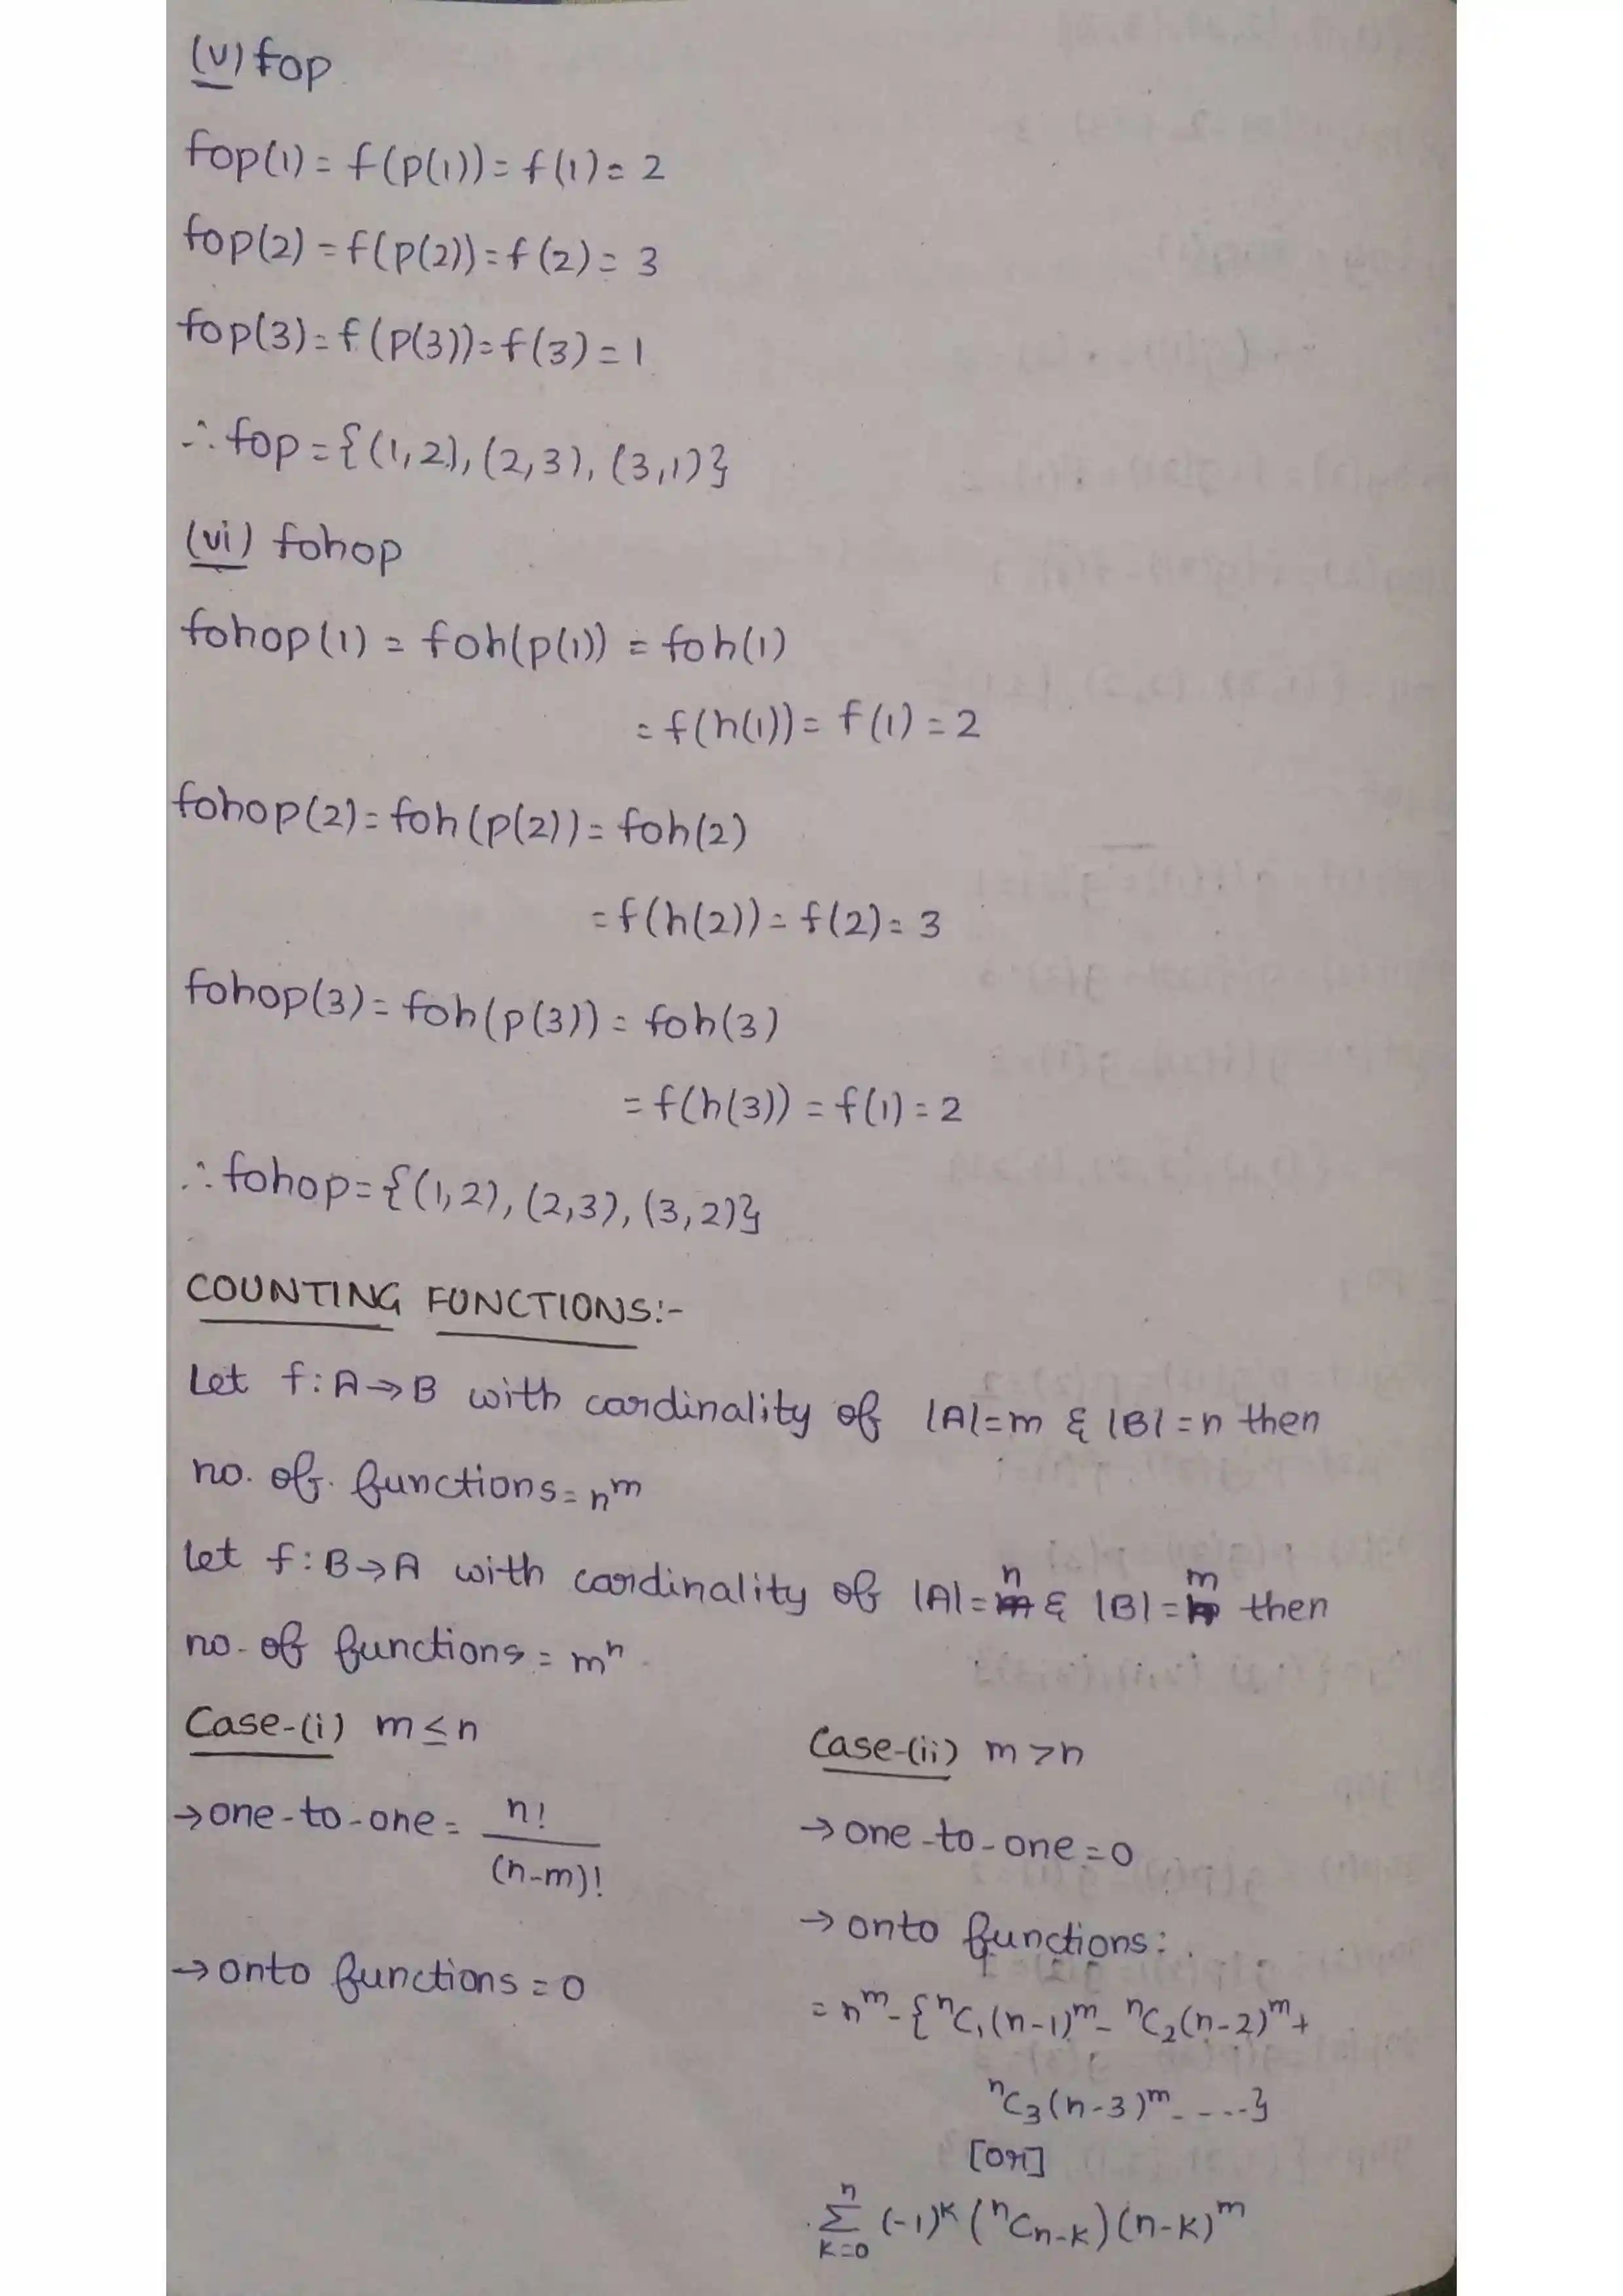 (v) fop
fop(1) = f(p(1)) = f(1) = 2
fop(2) = f(p(2)) = f(2) = 3
fop(3) = f(p(3)) = f(3) = 1
∴ fop = {(1,2), (2,3), (3,1)}
(vi) fohop
fohop(1) = foh(p(1)) = foh(1)
= f(h(1)) = f(1) = 2
fohop(2) = foh(p(2)) = foh(2)
= f(h(2)) = f(2) = 3
fohop(3) = foh(p(3)) = foh(3)
= f(h(3)) = f(1) = 2
∴ fohop = {(1,2), (2,3), (3,2)}
COUNTING FUNCTIONS:-
Let f: A→B with cardinality of |A|=m & |B|=n then
no. of functions = n^m
Let f: B→A with cardinality of |A|=n & |B|=m then
no. of functions = m^n
Case-(i) m≤n
→ one-to-one = n!/(n-m)!
→ onto functions = 0
Case-(ii) m>n
→ one-to-one = 0
→ onto functions:
= n^m - {ⁿC₁(n-1)^m - ⁿC₂(n-2)^m +
ⁿC₃(n-3)^m - ....}
[or]
n
Σ (-1)^k (ⁿC_{n-k}) (n-k)^m
k=0